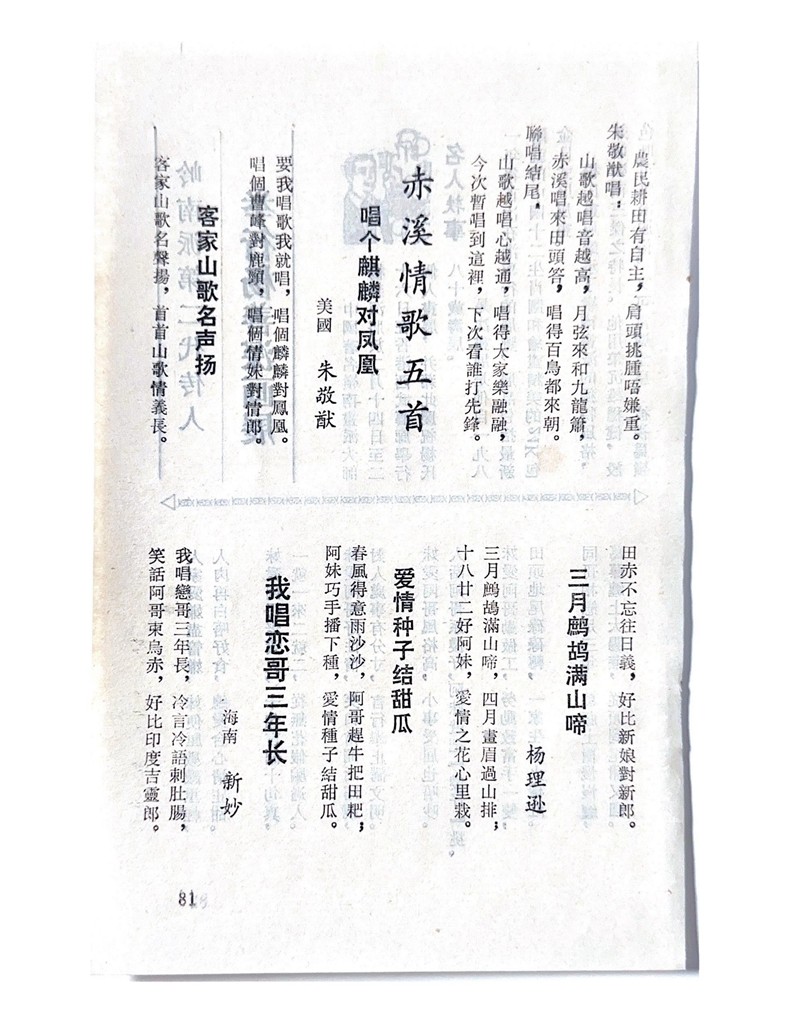 農民耕田有自主，肩頭挑腫唔嫌重。
朱敬猷唱：
山歌越唱音越高，月弦來和九龍簫，
赤溪唱來田頭答，唱得百鳥都來朝。
聯唱結尾，
山歌越唱心越通，唱得大家樂融融，
今次暫唱到這裡，下次看誰打先鋒。
赤溪情歌五首
唱个麒麟对凤凰
美國 朱敬猷
要我唱歌我就唱，唱個麒麟對鳳凰。
唱個曹峰對鹿頭，唱個情妹對情郎。
客家山歌名声扬
客家山歌名聲揚，首首山歌情義長。
田赤不忘往日義，好比新娘對新郎。
三月鹧鸪满山啼
杨理逊
三月鷓鴣滿山啼，四月畫眉過山排；
十八廿二好阿妹，愛情之花心里栽。
爱情种子结甜瓜
春風得意雨沙沙，阿哥趕牛把田耙；
阿妹巧手播下種，愛情種子結甜瓜。
我唱恋哥三年长
海南 新妙
我唱戀哥三年長，冷言冷語刺肚腸，
笑話阿哥柬烏赤，好比印度吉靈郎。
81